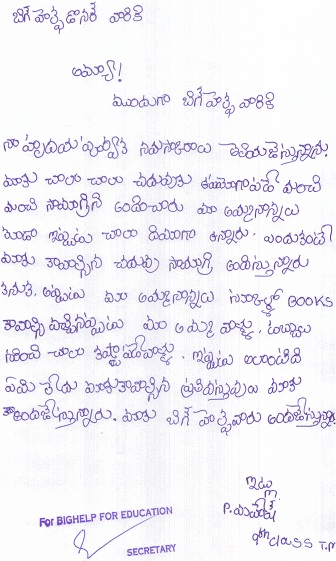 బిగ్ హెల్ప్ డొనర్ వారికి
అమ్మా!
ముందుగా బిగ్ హెల్ప్ వారికి
నా హృదయ పూర్వక నమస్కారాలు తెలియజేస్తున్నాను.
మాకు చాలా చాలా చదువుకు ఉపయోగపడే మంచి
మంచి సామాగ్రిని అందించారు మా అమ్మనాన్నలు
కూడా ఇప్పుడు చాలా ఉన్నారు. ఎందుకంటే
మాకు కావాల్సిన చదువు సామాగ్రి అందిస్తున్నారు
కనుక. అప్పుడు మా అమ్మనాన్నలు BOOKS
కావాల్సి వచ్చినప్పుడు మా అమ్మ వాళ్ళు. డబ్బులు
చాలా వాళ్ళు. ఇప్పుడు అలాంటిది
ఏమి లేదు మాకుకావాల్సిన ప్రతివస్తువు మాకు
అందజేస్తున్నారు. మాకు బిగ్ హెల్ప్ వారు అందజేస్తున్నా
ఇట్లు
P.
9th CLASS T.M
For BIGHELP FOR EDUCATION
SECRETARY